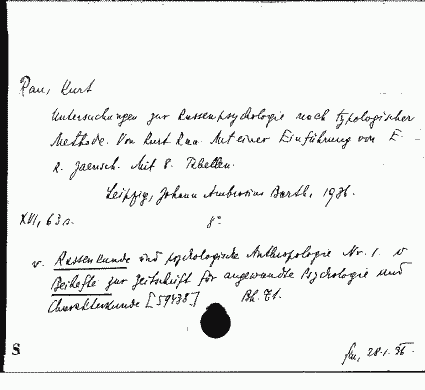 Rau, Kurt
Untersuchungen zur Rassenpsychologie nach typologischer
Methode. Von Kurt Rau. Mit einer Einführung von E.
R. Jaensch. Mit 8. Tabellen.
Leipzig, Johann Ambrosius Barth, 1936.
XVI, 63 s. 8°
v. Rassenkunde und psychologische Anthropologie Nr. 1. v
Beihefte zur Zeitschrift für angewandte Psychologie und
Charakterkunde [59438] Bh. 71.
S 28.1.36